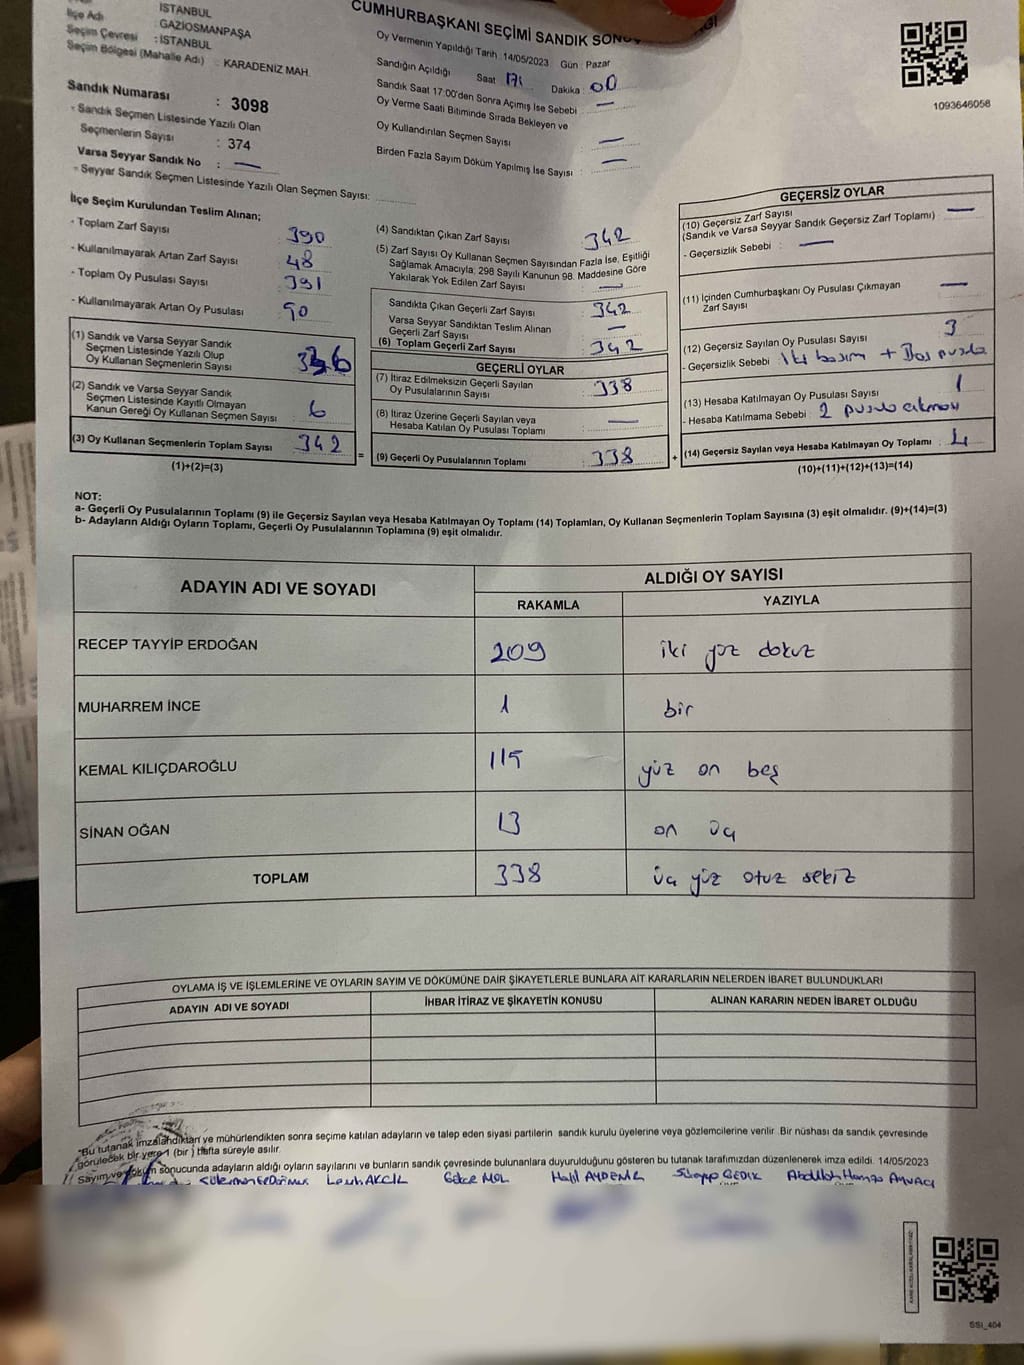 İlçe Adı : İSTANBUL
GAZİOSMANPAŞA
Seçim Çevresi : İSTANBUL
Seçim Bölgesi (Mahalle Adı) : KARADENİZ MAH.
Sandık Numarası : 3098
- Sandık Seçmen Listesinde Yazılı Olan
Seçmenlerin Sayısı : 374
Varsa Seyyar Sandık No : —
- Seyyar Sandık Seçmen Listesinde Yazılı Olan Seçmen Sayısı:
CUMHURBAŞKANI SEÇİMİ SANDIK
Oy Vermenin Yapıldığı Tarih :14/05/2023 Gün : Pazar
Sandığın Açıldığı Saat 17 Dakika : 00
Sandık Saat 17:00'den Sonra Açımış İse Sebebi : —
Oy Verme Saati Bitiminde Sırada Bekleyen ve
Oy Kullandırılan Seçmen Sayısı : —
Birden Fazla Sayım Döküm Yapılmış İse Sayısı : —
1093646058
İlçe Seçim Kurulundan Teslim Alınan;
- Toplam Zarf Sayısı 390
- Kullanılmayarak Artan Zarf Sayısı 48
- Toplam Oy Pusulası Sayısı 391
- Kullanılmayarak Artan Oy Pusulası
(1) Sandık ve Varsa Seyyar Sandık
Seçmen Listesinde Yazılı Olup
Oy Kullanan Seçmenlerin Sayısı 336
(2) Sandık ve Varsa Seyyar Sandık
Seçmen Listesinde Kayıtlı Olmayan
Kanun Gereği Oy Kullanan Seçmen Sayısı 6
(3) Oy Kullanan Seçmenlerin Toplam Sayısı 342
(1)+(2)=(3)
=
(4) Sandıktan Çıkan Zarf Sayısı 342
(5) Zarf Sayısı Oy Kullanan Seçmen Sayısından Fazla İse, Eşitliği
Sağlamak Amacıyla, 298 Sayılı Kanunun 98. Maddesine Göre
Yakılarak Yok Edilen Zarf Sayısı : —
Sandıkta Çıkan Geçerli Zarf Sayısı : 342
Varsa Seyyar Sandıktan Teslim Alınan
Geçerli Zarf Sayısı : —
(6) Toplam Geçerli Zarf Sayısı : 342
GEÇERLİ OYLAR
(7) İtiraz Edilmeksizin Geçerli Sayılan
Oy Pusulalarının Sayısı : 338
(8) İtiraz Üzerine Geçerli Sayılan veya
Hesaba Katılan Oy Pusulası Toplamı : —
(9) Geçerli Oy Pusulalarının Toplamı : 338
+
GEÇERSİZ OYLAR
(10) Geçersiz Zarf Sayısı : —
(Sandık ve Varsa Seyyar Sandık Geçersiz Zarf Toplamı)
- Geçersizlik Sebebi : —
(11) İçinden Cumhurbaşkanı Oy Pusulası Çıkmayan
Zarf Sayısı : —
(12) Geçersiz Sayılan Oy Pusulası Sayısı : 3
- Geçersizlik Sebebi : İki basım + Boş pusula
(13) Hesaba Katılmayan Oy Pusulası Sayısı : 1
- Hesaba Katılmama Sebebi : 2 pusula
(14) Geçersiz Sayılan veya Hesaba Katılmayan Oy Toplamı : 4
(10)+(11)+(12)+(13)=(14)
NOT:
a- Geçerli Oy Pusulalarının Toplamı (9) ile Geçersiz Sayılan veya Hesaba Katılmayan Oy Toplamı (14) Toplamları, Oy Kullanan Seçmenlerin Toplam Sayısına (3) eşit olmalıdır. (9)+(14)=(3)
b- Adayların Aldığı Oyların Toplamı, Geçerli Oy Pusulalarının Toplamına (9) eşit olmalıdır.
ADAYIN ADI VE SOYADI ALDIĞI OY SAYISI
RAKAMLA YAZIYLA
RECEP TAYYİP ERDOĞAN 209 iki yüz dokuz
MUHARREM İNCE 1 bir
KEMAL KILIÇDAROĞLU 115 yüz on beş
SİNAN OĞAN 13 on üç
TOPLAM 338 üç yüz otuz sekiz
OYLAMA İŞ VE İŞLEMLERİNE VE OYLARIN SAYIM VE DÖKÜMÜNE DAİR ŞİKAYETLERLE BUNLARA AİT KARARLARIN NELERDEN İBARET BULUNDUKLARI
ADAYIN ADI VE SOYADI İHBAR İTİRAZ VE ŞİKAYETİN KONUSU ALINAN KARARIN NEDEN İBARET OLDUĞU
"Bu tutanak imzalandıktan ve mühürlendikten sonra seçime katılan adayların ve talep eden siyasi partilerin sandık kurulu üyelerine veya gözlemcilerine verilir. Bir nüshası da sandık çevresinde
görülecek bir yere 1 (bir) hafta süreyle asılır.
Sayım ve döküm sonucunda adayların aldığı oyların sayılarını ve bunların sandık çevresinde bulunanlara duyurulduğunu gösteren bu tutanak tarafımızdan düzenlenerek imza edildi. 14/05/2023
AKCIL Halil AYDEMİR GEDİK Abdullah Hamza
SSI_404